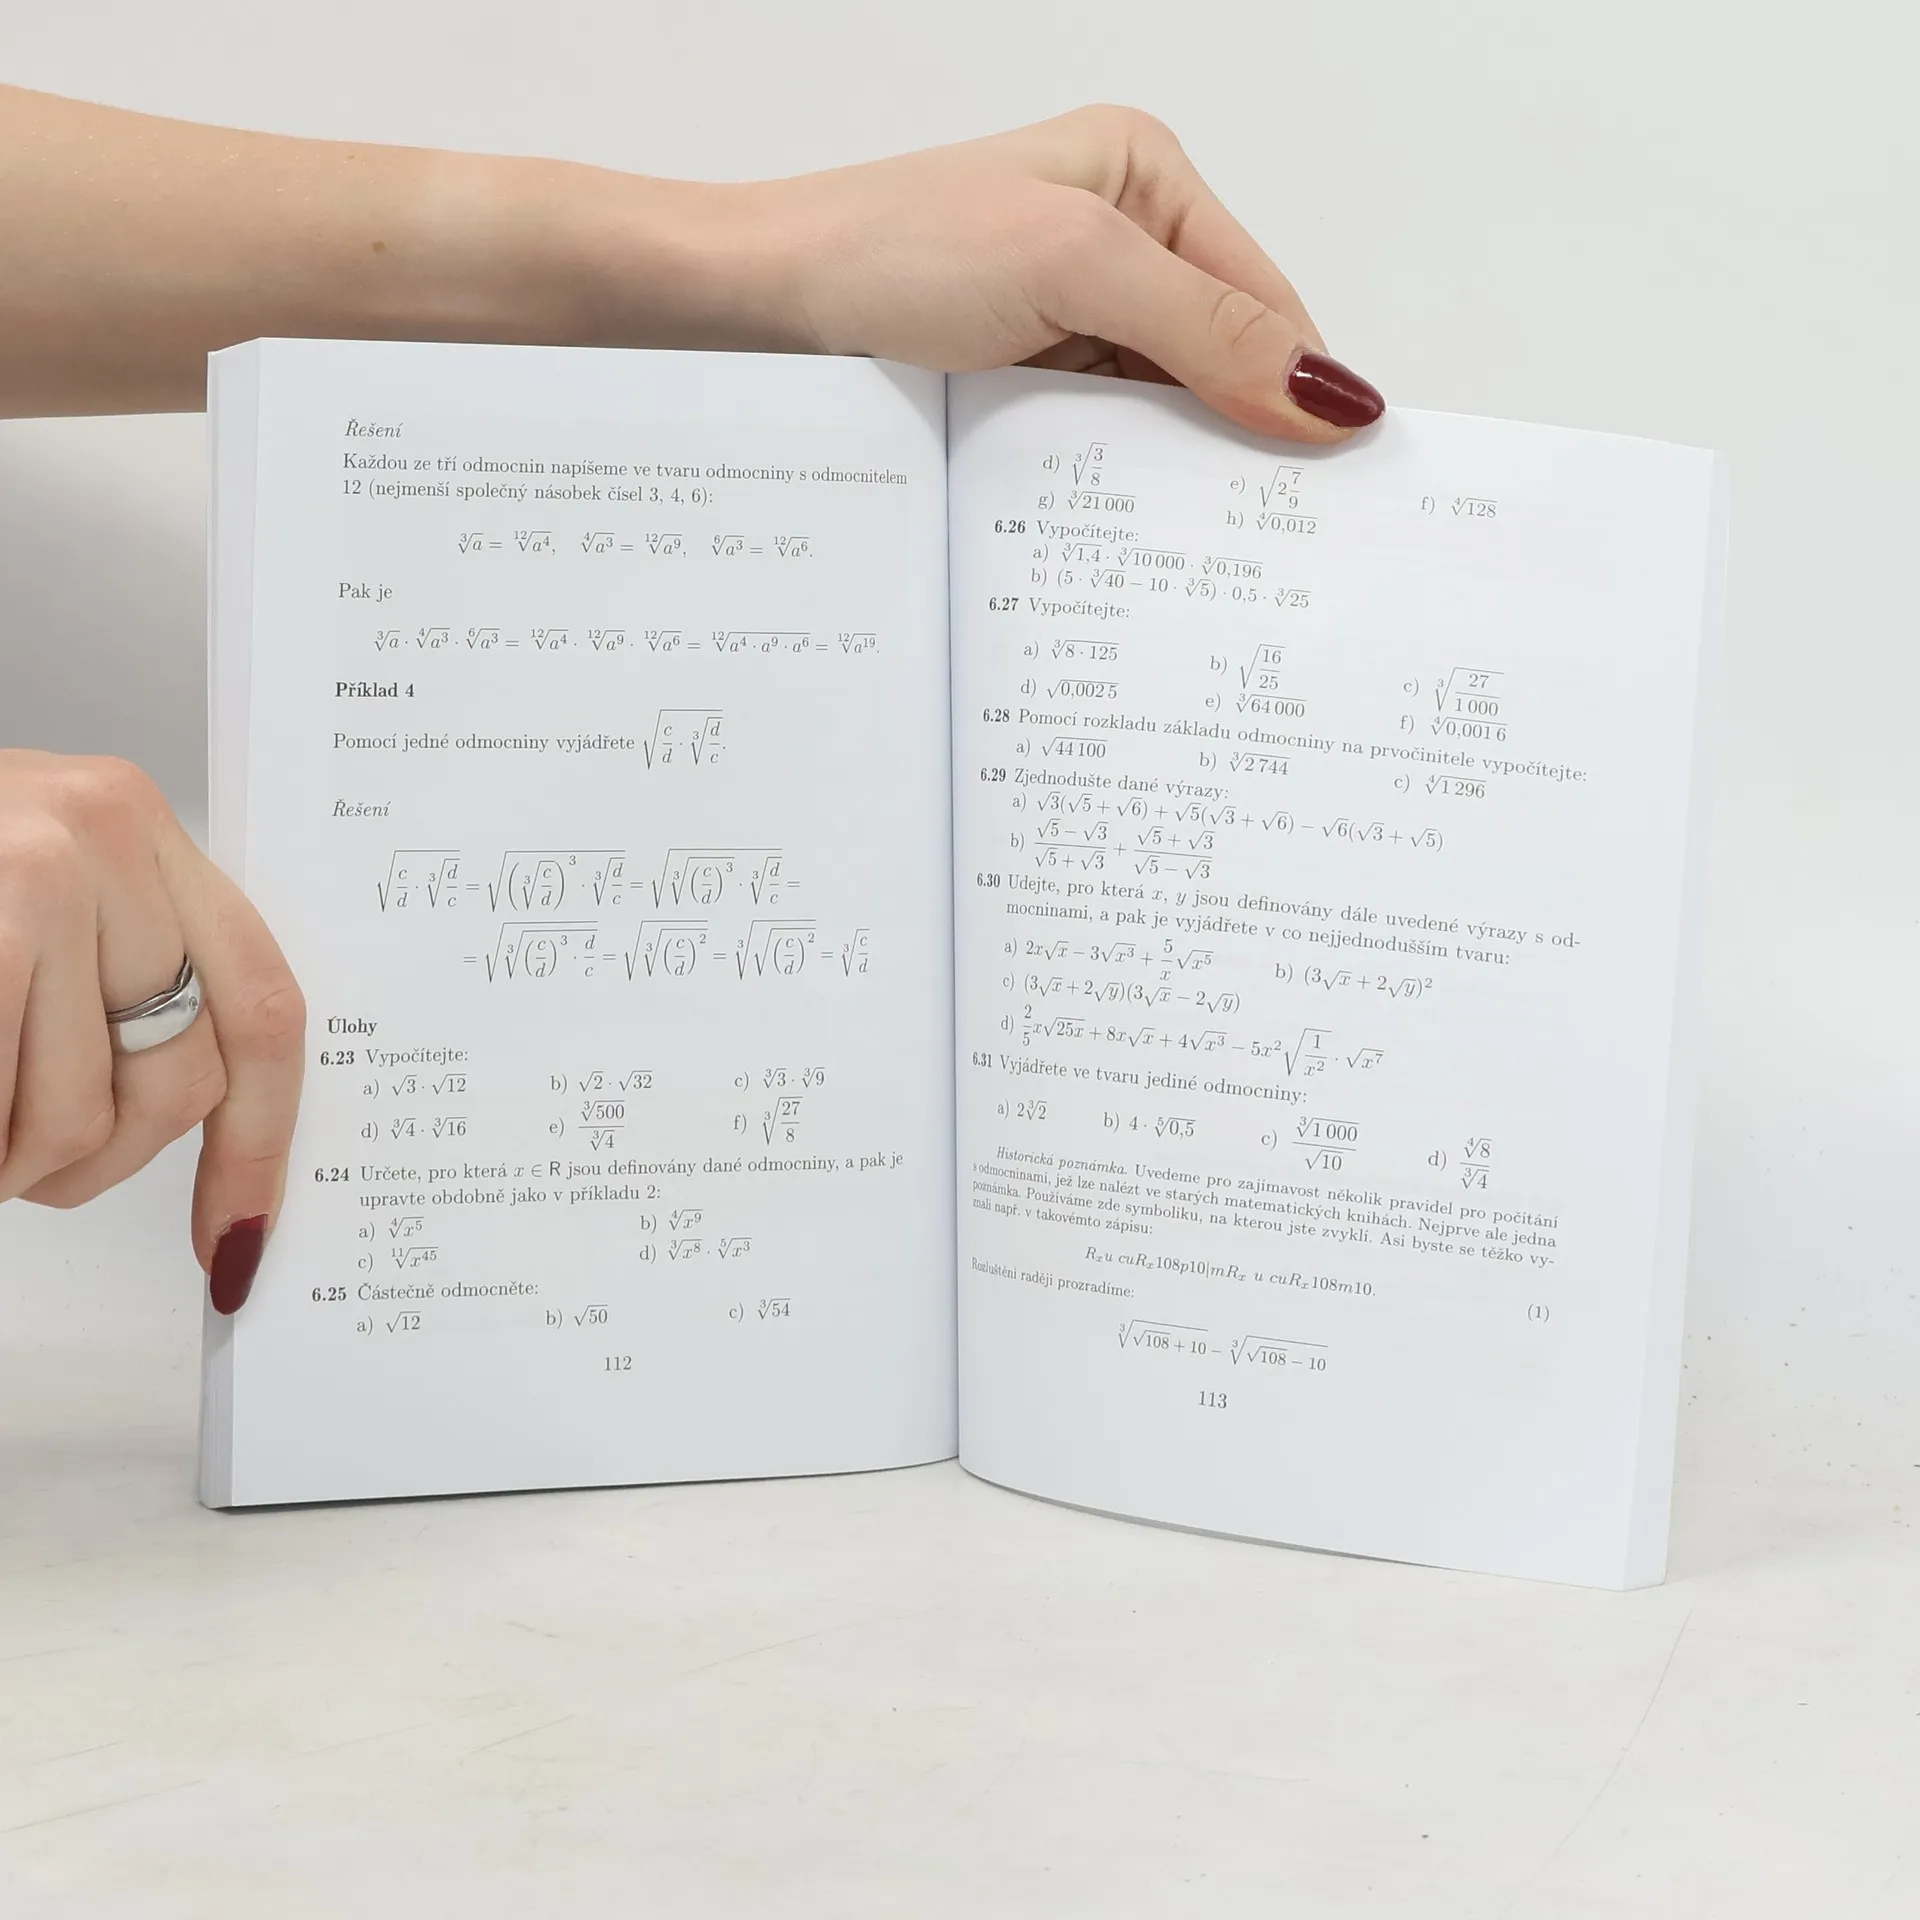 Řešení
Každou ze tří odmocnin napíšeme ve tvaru odmocniny s odmocnitelem
12 (nejmenší společný násobek čísel 3, 4, 6):
∛a = ¹²√a⁴, ∜a³ = ¹²√a⁹, ⁶√a³ = ¹²√a⁶.
Pak je
∛a · ∜a³ · ⁶√a³ = ¹²√a⁴ · ¹²√a⁹ · ¹²√a⁶ = ¹²√(a⁴ · a⁹ · a⁶) = ¹²√a¹⁹.
Příklad 4
Pomocí jedné odmocniny vyjádřete √(c/d · ∛(d/c)).
Řešení
√(c/d · ∛(d/c)) = √((∛(c/d))³ · ∛(d/c)) = √(∛((c/d)³) · ∛(d/c)) =
= √(∛((c/d)³ · d/c)) = √(∛((c/d)²)) = ∛(√((c/d)²)) = ∛(c/d)
Úlohy
6.23 Vypočítejte:
a) √3 · √12 b) √2 · √32 c) ∛3 · ∛9
d) ∛4 · ∛16 e) ∛500/∛4 f) ∛(27/8)
6.24 Určete, pro která x ∈ R jsou definovány dané odmocniny, a pak je
upravte obdobně jako v příkladu 2:
a) ∜x⁵ b) ∜x⁹
c) ¹¹√x⁴⁵ d) ∛x⁸ · ⁵√x³
6.25 Částečně odmocněte:
a) √12 b) √50 c) ∛54
112
d) ∛(3/8) e) √(2 7/9) f) ∜128
g) ∛21 000 h) ∜0,012
6.26 Vypočítejte:
a) ∛1,4 · ∛10 000 · ∛0,196
b) (5 · ∛40 − 10 · ∛5) · 0,5 · ∛25
6.27 Vypočítejte:
a) ∛(8 · 125) b) √(16/25) c) ∛(27/1 000)
d) √0,002 5 e) ∛64 000 f) ∜0,001 6
6.28 Pomocí rozkladu základu odmocniny na prvočinitele vypočítejte:
a) √44 100 b) ∛2 744 c) ∜1 296
6.29 Zjednodušte dané výrazy:
a) √3(√5 + √6) + √5(√3 + √6) − √6(√3 + √5)
b) (√5 − √3)/(√5 + √3) + (√5 + √3)/(√5 − √3)
6.30 Udejte, pro která x, y jsou definovány dále uvedené výrazy s od-
mocninami, a pak je vyjádřete v co nejjednodušším tvaru:
a) 2x√x − 3√x³ + 5/x √x⁵ b) (3√x + 2√y)²
c) (3√x + 2√y)(3√x − 2√y)
d) 2/5 x√25x + 8x√x + 4√x³ − 5x²√(1/x²) · √x⁷
6.31 Vyjádřete ve tvaru jediné odmocniny:
a) 2∛2 b) 4 · ⁵√0,5 c) ∛1 000/√10 d) ∜8/∛4
Historická poznámka. Uvedeme pro zajímavost několik pravidel pro počítání
s odmocninami, jež lze nalézt ve starých matematických knihách. Nejprve ale jedna
poznámka. Používáme zde symboliku, na kterou jste zvyklí. Asi byste se těžko vy-
mali např. v takovémto zápisu:
Rₓu cuRₓ108p10|mRₓ u cuRₓ108m10. (1)
Rozluštění raději prozradíme:
∛(√108 + 10) − ∛(√108 − 10)
113